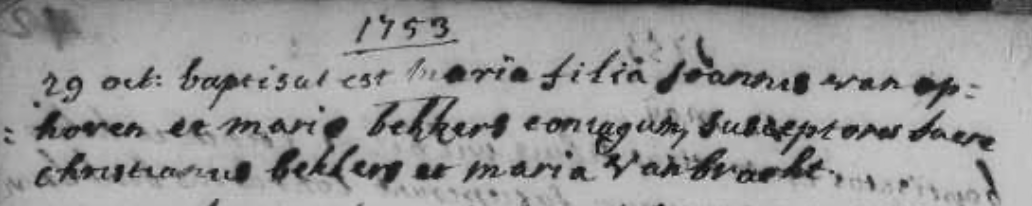 1753
29 oct: baptisat est maria filia Joannes van op=
= hoven et maria bekkers coniugum, susceptores fuere
christianus bekkers et maria van bracht.